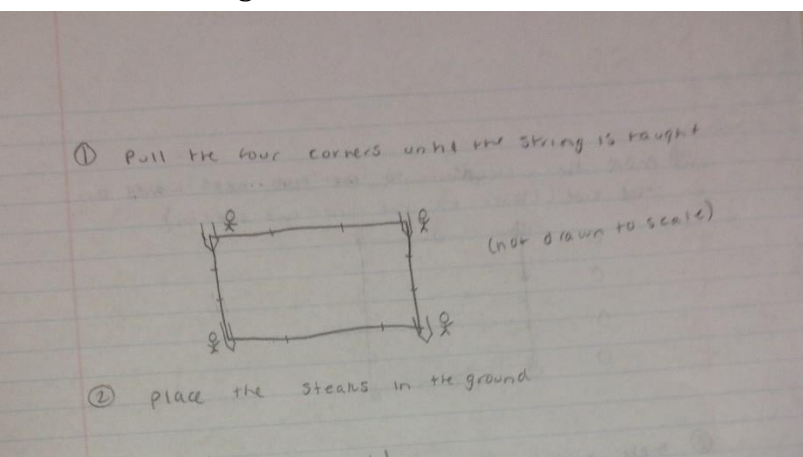 ① Pull the four corners until the string is taught
(not drawn to scale)
② place the steaks in the ground